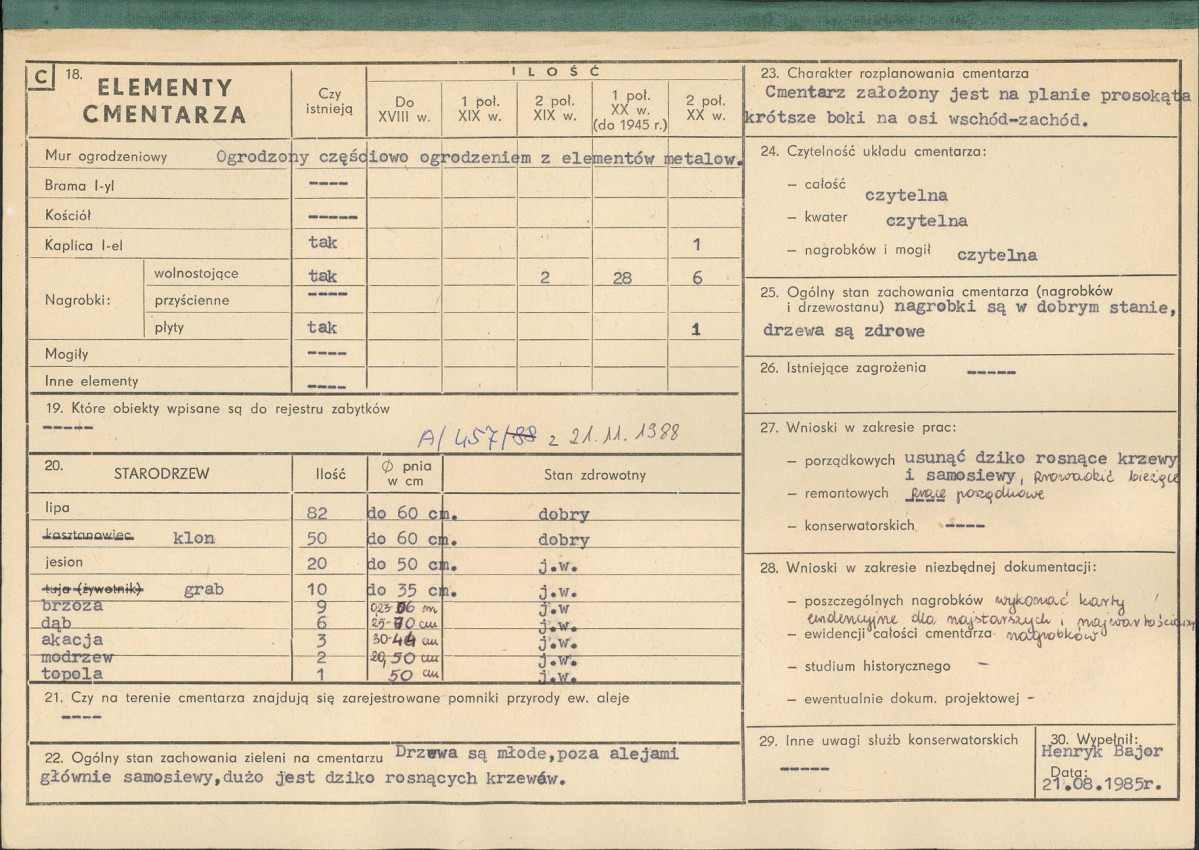 C 18. ELEMENTY CMENTARZA
Czy istnieją
ILOŚĆ
Do XVIII w.
1 poł. XIX w.
2 poł. XIX w.
1 poł. XX w. (do 1945 r.)
2 poł. XX w.
Mur ogrodzeniowy Ogrodzony częściowo ogrodzeniem z elementów metalow.
Brama I-yl ----
Kościół -----
Kaplica I-el tak 1
Nagrobki:
wolnostojące tak 2 28 6
przyścienne ----
płyty tak 1
Mogiły ----
Inne elementy ----
19. Które obiekty wpisane są do rejestru zabytków
-----
A/457/88 z 21.11.1988
20. STARODRZEW Ilość Ø pnia w cm Stan zdrowotny
lipa 82 do 60 cm. dobry
kasztanowiec klon 50 do 60 cm. dobry
jesion 20 do 50 cm. j.w.
tuja (żywotnik) grab 10 do 35 cm. j.w.
brzoza 9 j.w
dąb 6 25-70 cm j.w.
akacja 3 30-44 cm j.w.
modrzew 2 20, 50 cm j.w.
topola 1 50 cm j.w.
21. Czy na terenie cmentarza znajdują się zarejestrowane pomniki przyrody ew. aleje
----
22. Ogólny stan zachowania zieleni na cmentarzu Drzewa są młode,poza alejami
głównie samosiewy,dużo jest dziko rosnących krzewów.
23. Charakter rozplanowania cmentarza
Cmentarz założony jest na planie prosokąta
krótsze boki na osi wschód-zachód.
24. Czytelność układu cmentarza:
– całość czytelna
– kwater czytelna
– nagrobków i mogił czytelna
25. Ogólny stan zachowania cmentarza (nagrobków
i drzewostanu) nagrobki są w dobrym stanie,
drzewa są zdrowe
26. Istniejące zagrożenia -----
27. Wnioski w zakresie prac:
– porządkowych usunąć dziko rosnące krzewy
i samosiewy, prowadzić bieżące
– remontowych ---- prace porządkowe
– konserwatorskich ----
28. Wnioski w zakresie niezbędnej dokumentacji:
– poszczególnych nagrobków wykonać karty
ewidencyjne dla najstarszych i
– ewidencji całości cmentarza nagrobków
– studium historycznego –
– ewentualnie dokum. projektowej –
29. Inne uwagi służb konserwatorskich
-----
30. Wypełnił:
Henryk Bajor
Data:
21.08.1985r.